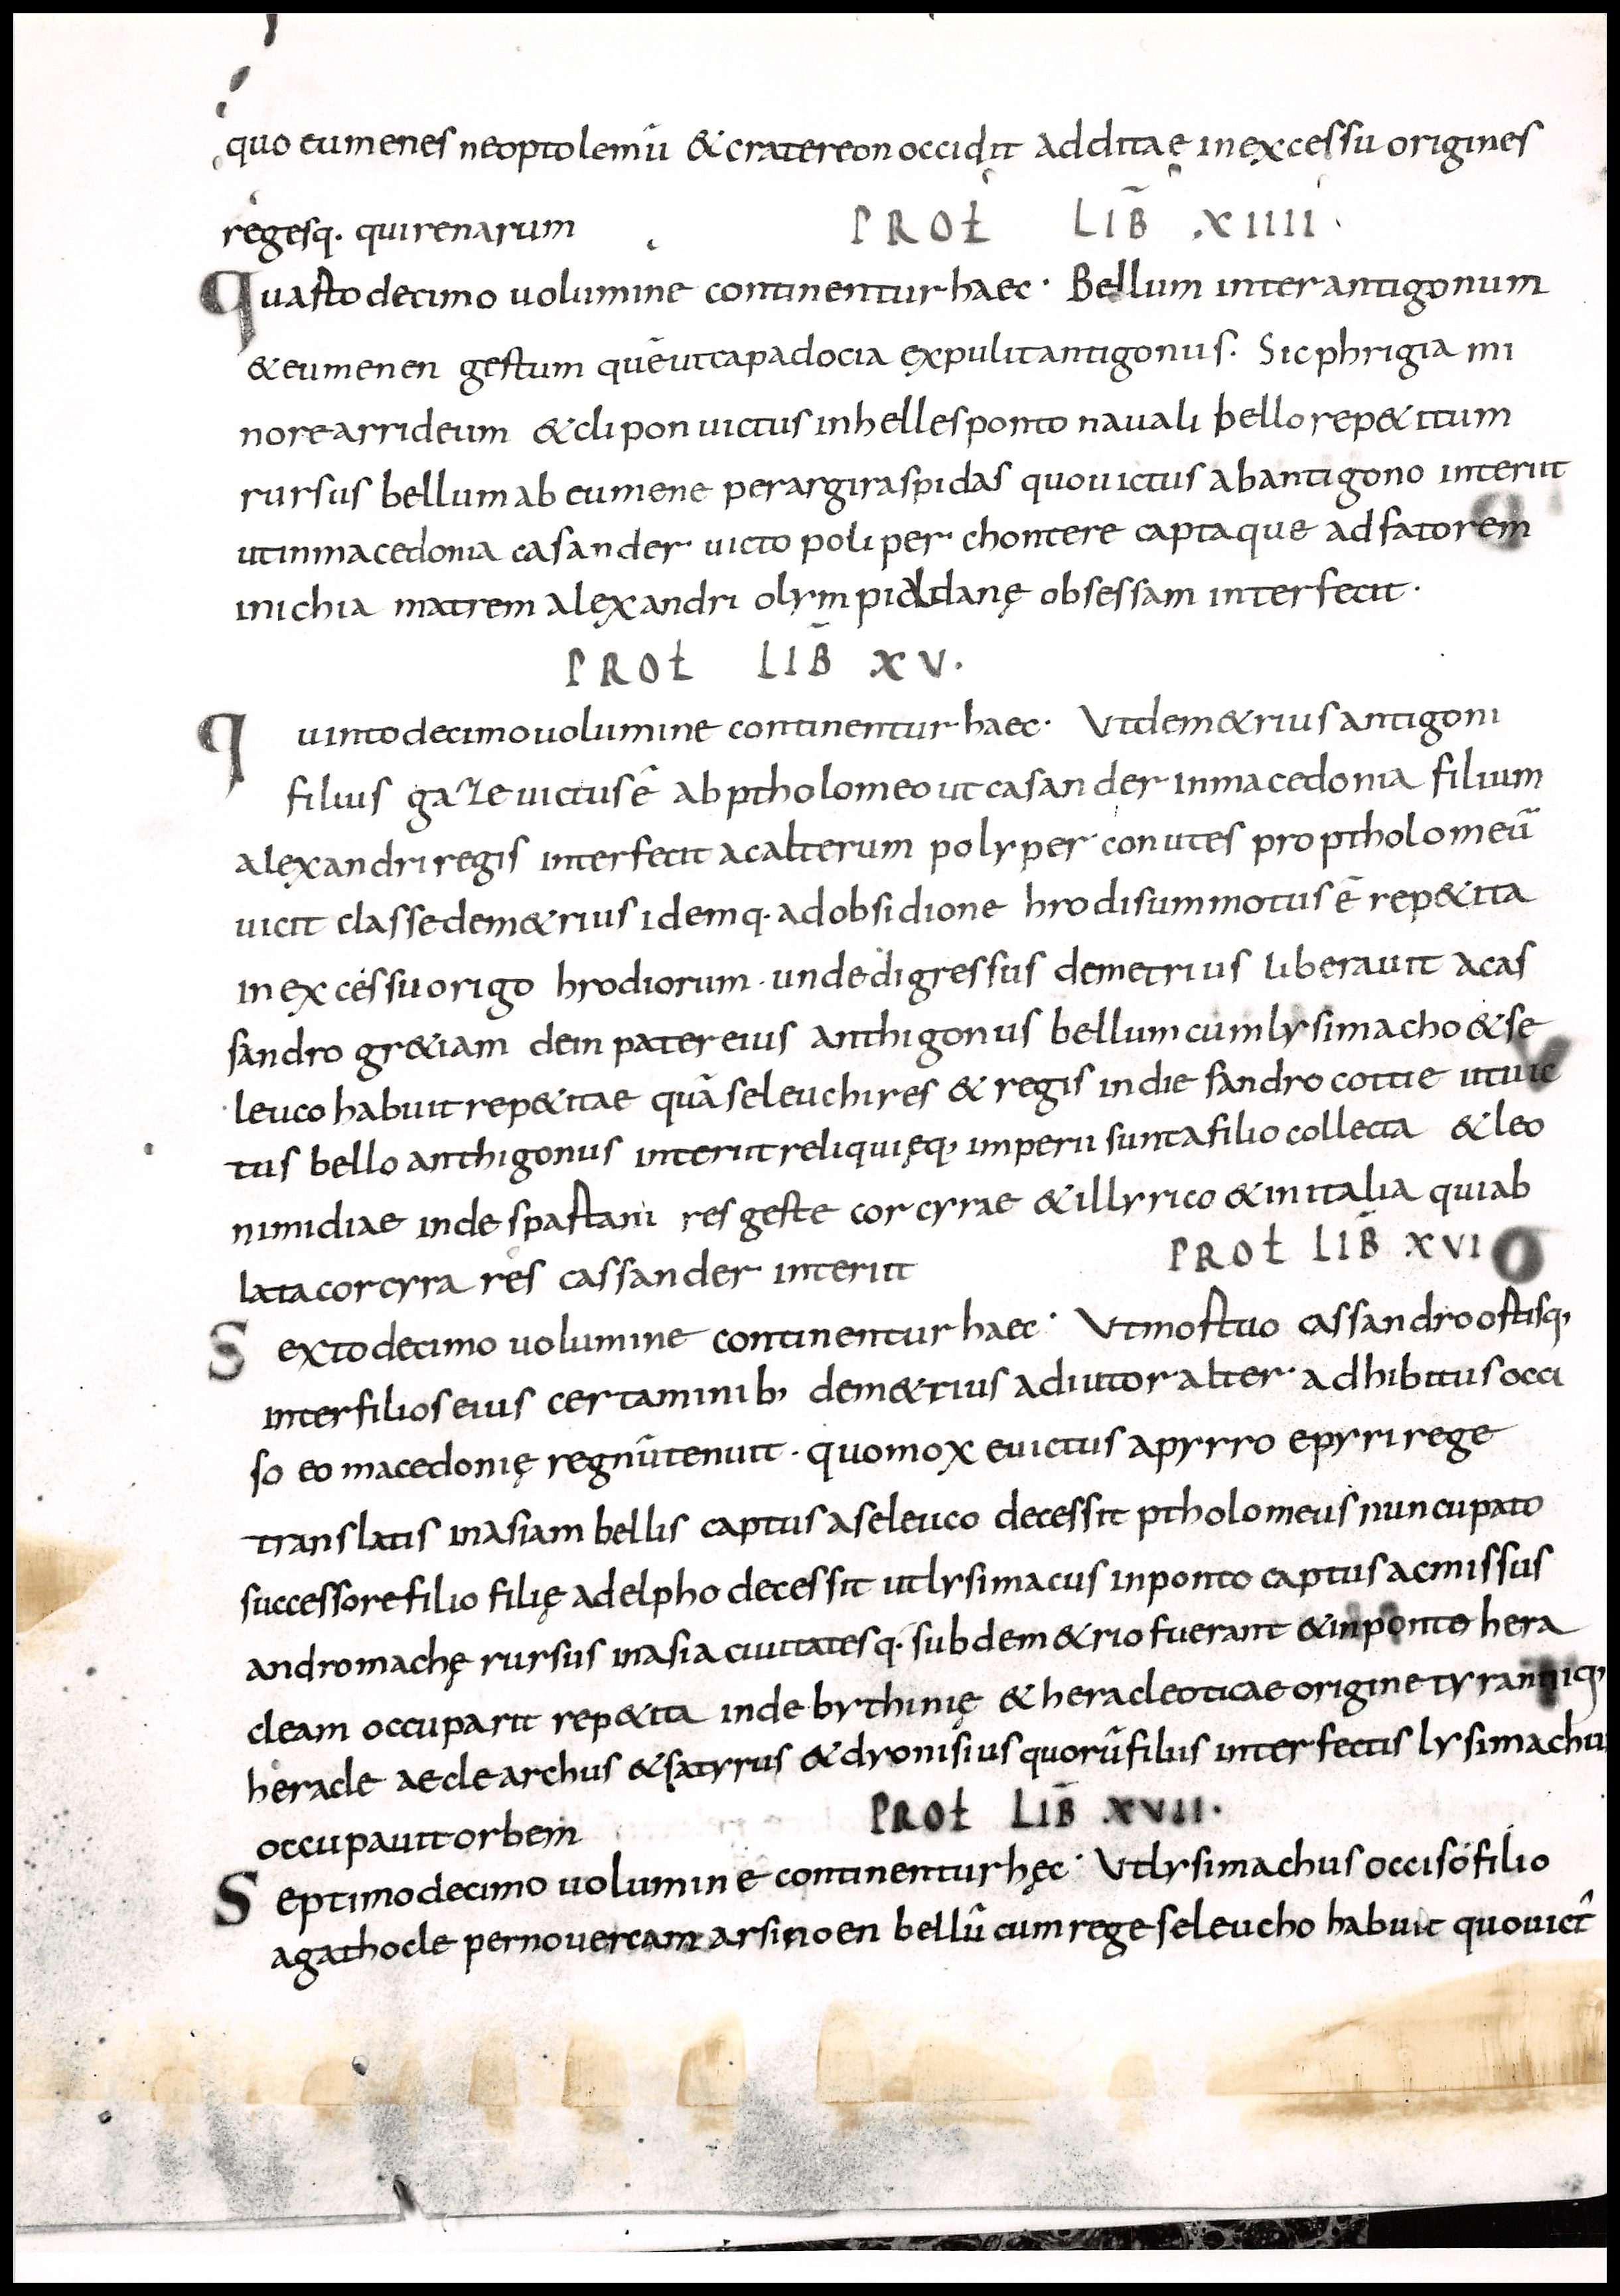 quo eumenes neoptolemū & cratereon occidit additaę in excessu origines
regesq. quirenarum PROŁ LIB̄ XIIII.
Quarto decimo uolumine continentur haec. Bellum inter antigonum
& eumenen gestum quē ut capadocia expulit antigonus. Sic phrigia mi
nore arrideum & clipon uictus in hellesponto nauali bello rep&itum
rursus bellum ab eumene per argiraspidas quo uictus ab antigono interiit
ut in macedonia casander uicto poliper chontere captaque ad fatorem
inichia matrem alexandri olympiadanę obsessam interfecit.
PROŁ LIB̄ XV.
Quinto decimo uolumine continentur haec. Vt dem&rius antigoni
filius gaze uictus ē ab ptholomeo ut casander in macedonia filium
alexandri regis interfecit ac alterum polyper con utes pro ptholomeū
uicit classe dem&rius idemq. ad obsidione hrodi summotus ē rep&ita
in excessu origo hrodiorum. unde digressus demetrius liberauit a cas
sandro gr&iam dein pater eius anthigonus bellum cum lysimacho & se
leuco habuit rep&itae quā seleuchi res & regis indie sandrocottie ut uic
tus bello anthigonus interiit reliquięq, imperii sunt a filio collecta & leo
nimidiae inde spartani res geste corcyrae & illyrico & in italia qui ab
lata corcyra res cassander interiit PROŁ LIB̄ XVI
Sexto decimo uolumine continentur haec. Vt mortuo cassandro ortisq,
inter filios eius certaminib, dem&rius adiutor alter adhibitus occi
so eo macedonię regnū tenuit. quo mox euictus a pyrro epyri rege
translatis in asiam bellis captus a seleuco decessit ptholomeus nuncupato
successore filio filię adelpho decessit ut lysimacus in ponto captus ac missus
andromachę rursus in asia ciuitatesq. sub dem&rio fuerant & in ponto hera
cleam occuparit rep&ita inde bythinię & heracleoticae origine tyranniq,
heracle ae clearchus & satyrus & dyonisius quorū filiis interfectis lysimachu
occupauit orbem PROŁ LIB̄ XVII.
Septimo decimo uolumine continentur hęc. Vt lysimachus occiso filio
agathocle per nouercam arsinoen bellū cum rege seleucho habuit quo uict᷑